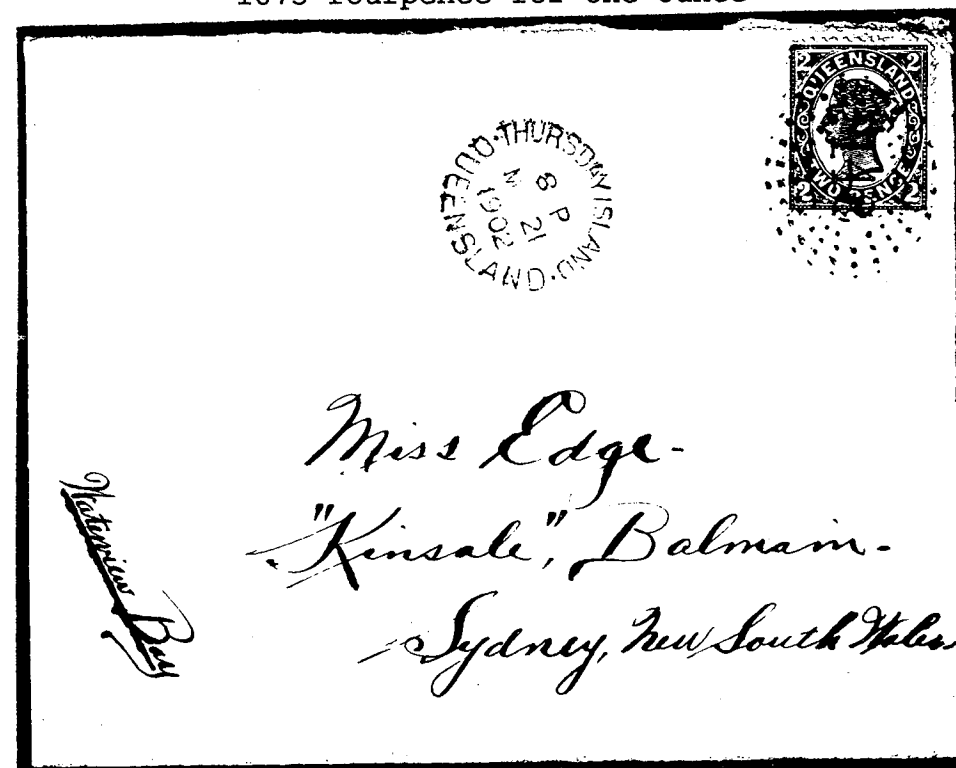 QUEENSLAND
2 2
TWO PENCE
2 2
THURSDAY ISLAND
8 P
M 21
1902
QUEENSLAND
Miss Edge-
"Kinsale", Balmain.
Sydney, New South Wales
Waterview Bay